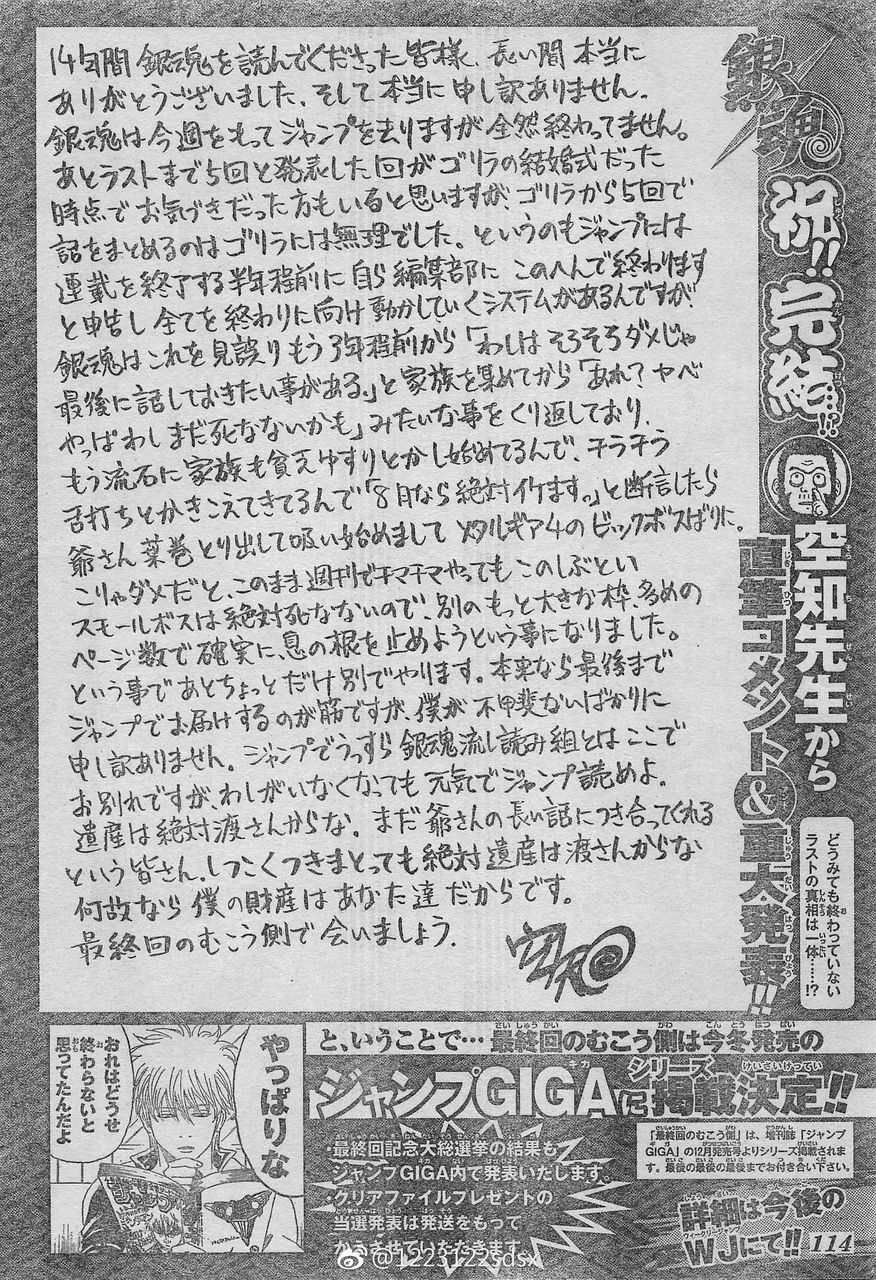 14年間 銀魂を読んでくださった皆様、長い間 本当に
ありがとうございました、そして本当に申し訳ありません。
銀魂は今週をもってジャンプを去りますが全然終わってません。
あとラストまで5回と発表した回がゴリラの結婚式だった
時点でお気づきだった方もいると思いますが、ゴリラから5回で
話をまとめるのはゴリラには無理でした。というのもジャンプには
連載を終了する半年程前に自ら編集部に このへんで終わります
と申告し全てを終わりに向け動かしていくシステムがあるんですが、
銀魂はこれを見誤りもう2年程前から「わしはそろそろダメじゃ
最後に話しておきたい事がある。」と家族を集めてから「あれ?ヤベ
やっぱわしまだ死なないかも」みたいな事をくり返しており、
もう流石に家族も貧乏ゆすりとかし始めてるんで、チラチラ
舌打ちとかきこえてきてるんで「8月なら絶対イケます。」と断言したら
爺さん葉巻とり出して吸い始めまして メタルギア4のビックボスばりに。
こりゃダメだと、このまま週刊でチマチマやっても このしぶとい
スモールボスは絶対死なないので、別のもっと大きな枠、多めの
ページ数で確実に、息の根を止めようという事になりました。
という事であとちょっとだけ別でやります。本来なら最後まで
ジャンプでお届けするのが筋ですが、僕が不甲斐ないばかりに
申し訳ありません。ジャンプでうっすら銀魂流し読み組とはここで
お別れですが、わしがいなくなっても 元気でジャンプ読めよ。
遺産は絶対渡さんからな。まだ爺さんの長い話につき合ってくれる
という皆さん、しつこくつきまとっても絶対遺産は渡さんからな
何故なら 僕の財産は あなた達だからです。
最終回のむこう側で会いましょう。
銀魂
祝!!完結…!?
空知先生から
直筆コメント&重大発表!!
どうみても終わっていない
ラストの真相は一体……!?
やっぱりな
おれはどうせ
終わらないと
思ってたんだよ
と、いうことで…最終回のむこう側は今冬発売の
ジャンプGIGAにシリーズ掲載決定!!
・最終回記念大総選挙の結果も
ジャンプGIGA内で発表いたします。
・クリアファイルプレゼントの
当選発表は発送をもって
かえさせていただきます。
「最終回のむこう側」は、増刊誌「ジャンプ
GIGA」の12月発売号よりシリーズ掲載されま
す。最後の最後の最後までお付き合い下さい。
詳細は今後の
WJにて!!
114
@1223122sdsx